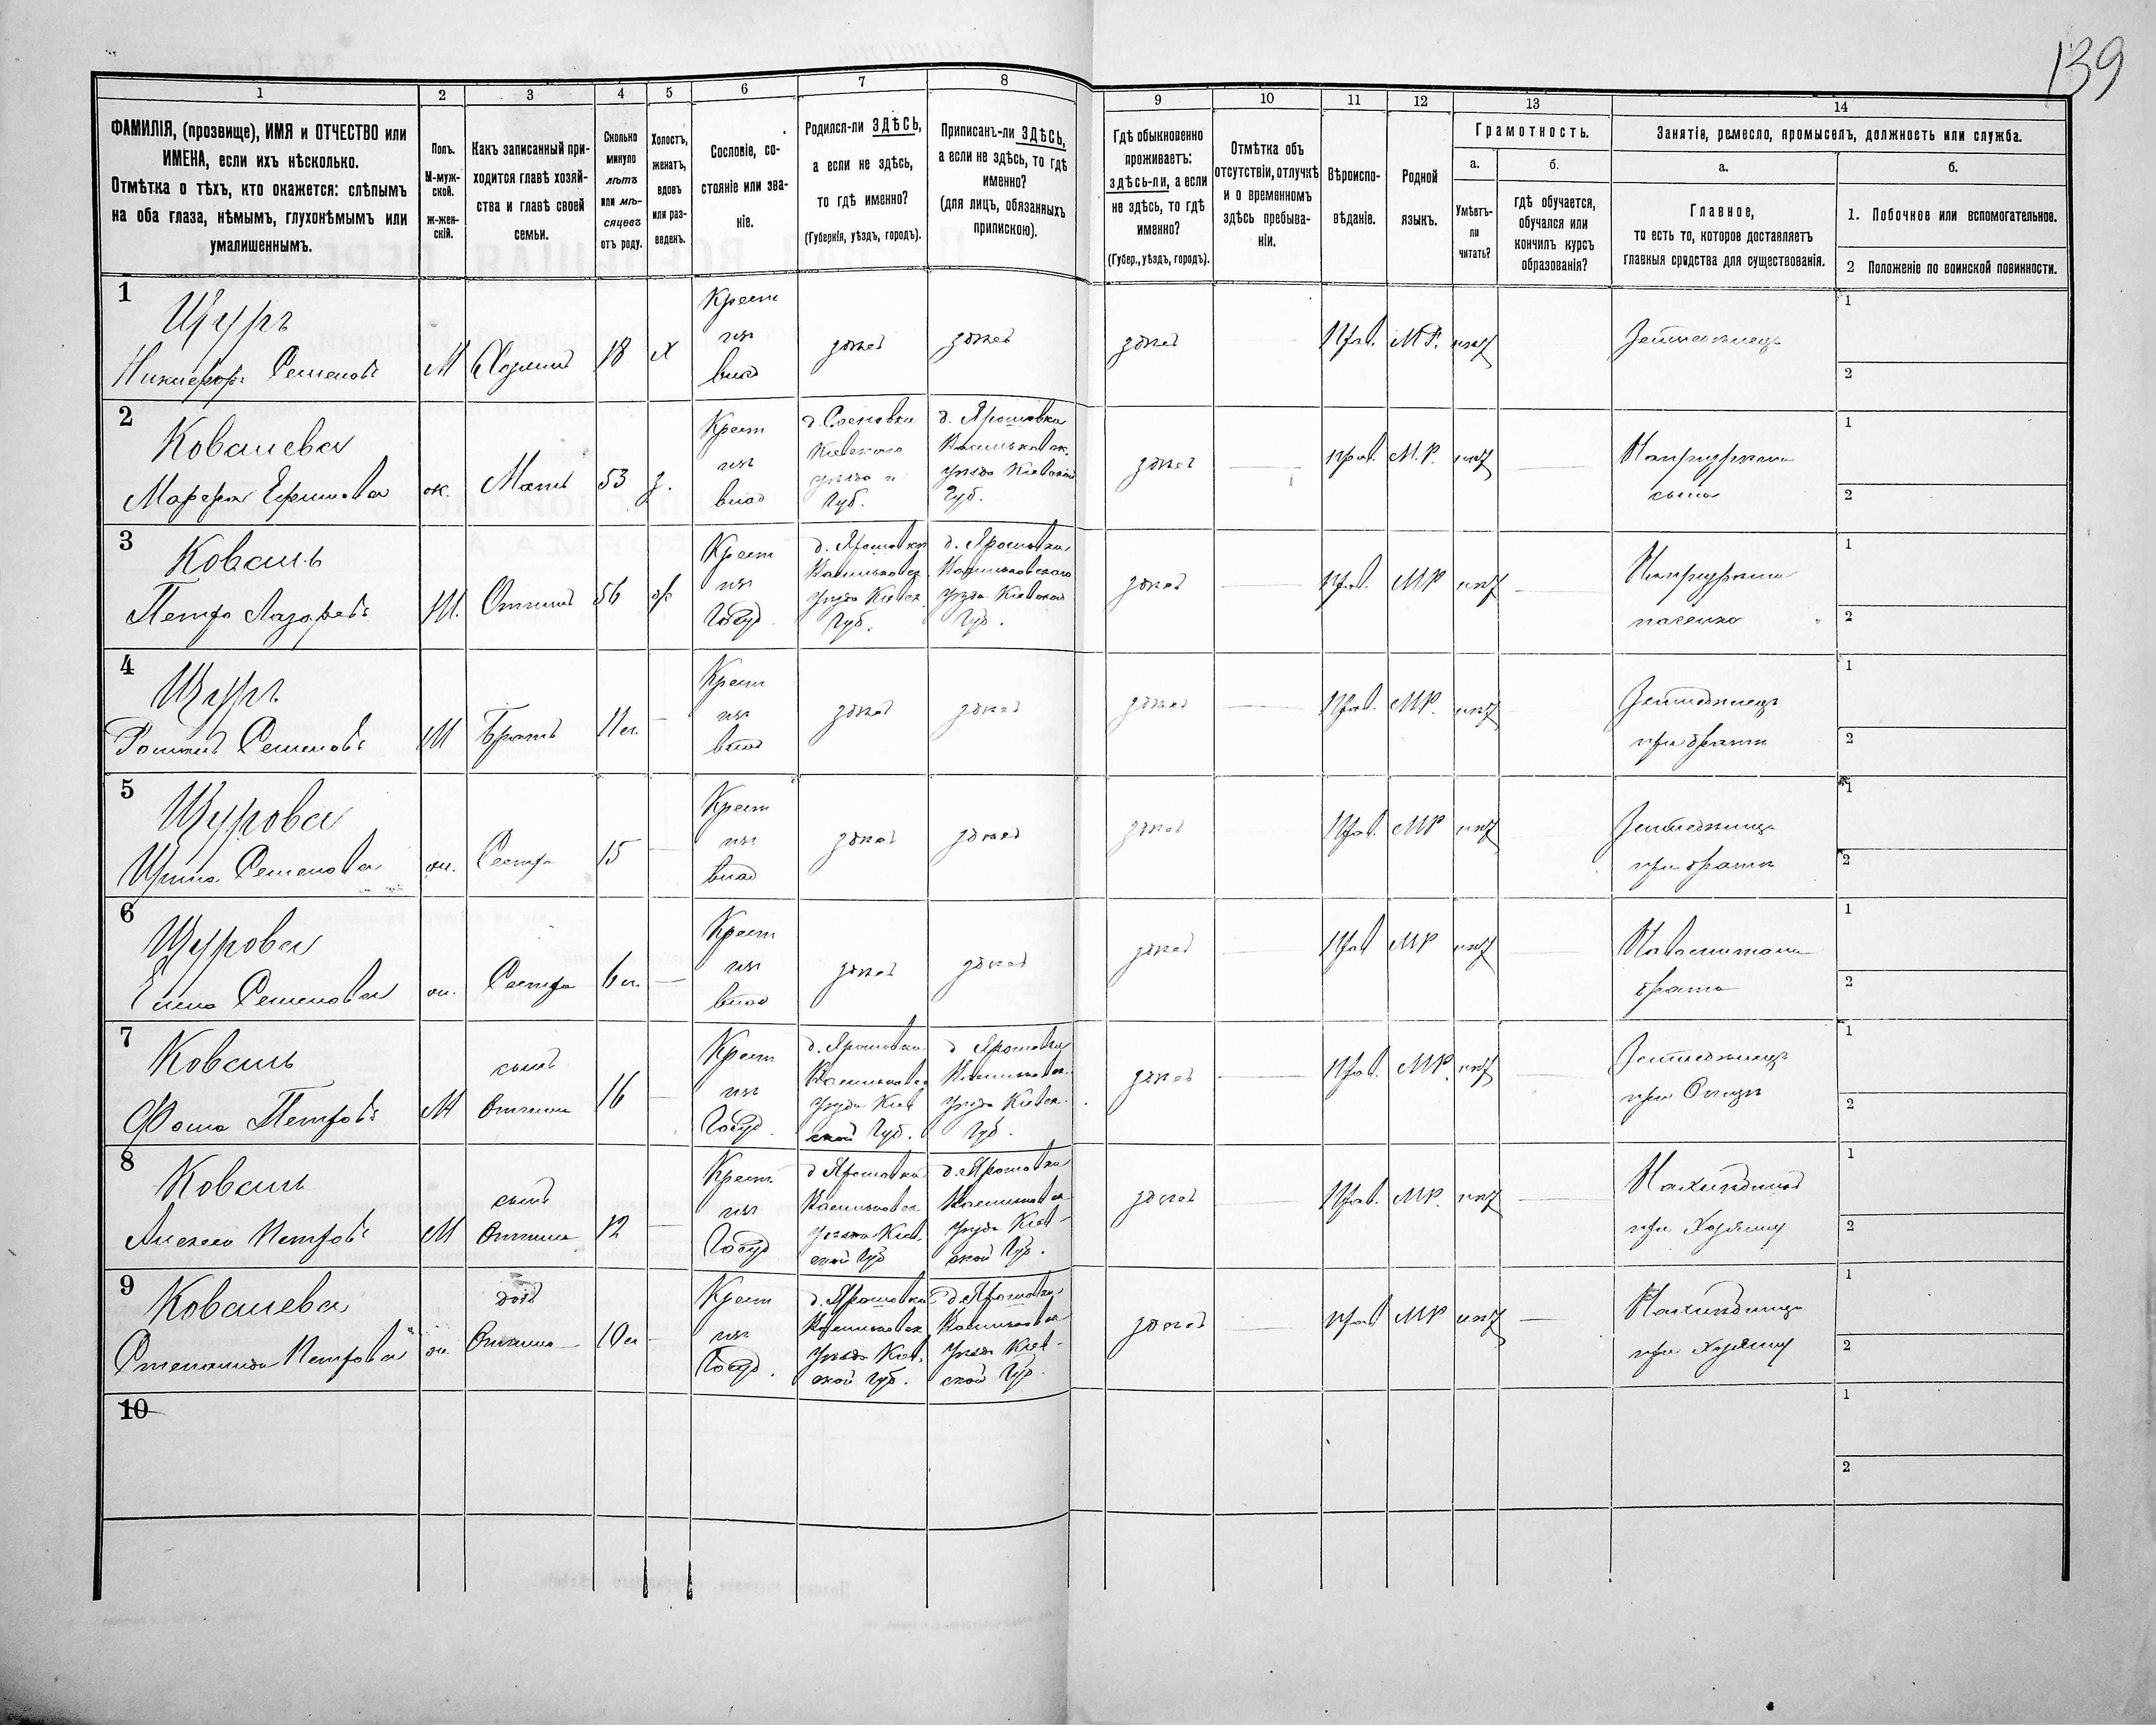 139
1
2
3
4
5
6
7
8
9
10
11
12
13
14
ФАМИЛІЯ, (прозвище), ИМЯ и ОТЧЕСТВО или
ИМЕНА, если ихъ нѣсколько.
Отмѣтка о тѣхъ, кто окажется: слѣпымъ
на оба глаза, нѣмымъ, глухонѣмымъ или
умалишеннымъ.
Полъ.
М-муж-
ской.
ж-жен-
скій.
Какъ записанный при-
ходится главѣ хозяй-
ства и главѣ своей
семьи.
Сколько
минуло
лѣтъ
или мѣ-
сяцевъ
отъ роду.
Холостъ,
женатъ,
вдовъ
или раз-
веденъ.
Сословіе, со-
стояніе или зва-
ніе.
Родился-ли ЗДѢСЬ,
а если не здѣсь,
то гдѣ именно?
(Губернія, уѣздъ, городъ).
Приписанъ-ли ЗДѢСЬ,
а если не здѣсь, то гдѣ
именно?
(для лицъ, обязанныхъ
припискою).
Гдѣ обыкновенно
проживаетъ:
здѣсь-ли, а если
не здѣсь, то гдѣ
именно?
(Губер., уѣздъ, городъ).
Отмѣтка объ
отсутствіи, отлучкѣ
и о временномъ
здѣсь пребыва-
ніи.
Вѣроиспо-
вѣданіе.
Родной
языкъ.
Грамотность.
а.
Умѣетъ-
ли
читать?
б.
гдѣ обучается,
обучался или
кончилъ курсъ
образованія?
Занятіе, ремесло, промыселъ, должность или служба.
а.
Главное,
то есть то, которое доставляетъ
главныя средства для существованія.
б.
1. Побочное или вспомогательное.
2 Положеніе по воинской повинности.
1
Щуръ
Никифоръ Семеновъ
М
Хозяинъ
18
х
Крест
изъ
влад
здѣсь
здѣсь
здѣсь
Прав.
М.Р.
нѣт
Земледѣлецъ
1
2
2
Ковалева
Марфа Ефимова
ж.
Мать
53
з.
Крест
изъ
влад
д. Сосновка
Кіевскаго
уѣзда и
Губ.
д. Ярошовка
Васильковск.
уѣзда Кіевской
Губ.
здѣсь
прав.
М.Р.
нѣт
При
сына
1
2
3
Коваль
Петръ Лазоревъ
М.
Отчимъ
56
ж
Крест
изъ
Госуд.
д. Ярошовки
Васильковск.
уѣзда Кіевск.
Губ.
д. Ярошовки
Васильковскаго
уѣзда Кіевской
Губ.
здѣсь
прав.
МР
нѣт
1
2
4
Щуръ
Романъ Семеновъ
М
Братъ
11 л.
Крест
изъ
влад
здѣсь
здѣсь
здѣсь
Прав.
МР.
нѣт
Земледѣлецъ
при братѣ
1
2
5
Щурова
Ирина Семенова
ж.
Сестра
15
Крест
изъ
влад
здѣсь
здѣсь
здѣсь
Прав.
МР
нѣт
Земледѣлица
при братѣ
1
2
6
Щурова
Елена Семенова
ж.
Сестра
6 л.
Крест
изъ
влад
здѣсь
здѣсь
здѣсь
Прав
МР
нѣт
брата
1
2
7
Коваль
Фома Петровъ
М
сынъ
Отчима
16
Крест
изъ
Госуд.
д. Ярошовки
Васильковск
уѣзда Кіев
ской Губ.
д Ярошовки
Васильковск.
уѣзда Кіевск.
Губ.
здѣсь
Прав.
МР.
нѣт
Земледѣлецъ
при Отцѣ
1
2
8
Коваль
Алексей Петровъ
М
сынъ
Отчима
12
Крест
изъ
Госуд
д Ярошовки
Васильковск
уѣзда Кіев.
ской Губ
д. Ярошовки
Васильковск
уѣзда Кіев-
ской Губ.
здѣсь
Прав.
МР.
нѣт
Нахлѣбникъ
при Хозяину
1
2
9
Ковалева
Степанида Петрова
ж
доч
Отчима
10 л
Крест
изъ
Госуд.
д. Ярошовка
Васильковск
уѣзда Кіев.
ской Губ.
д. Ярошовки
Васильковск
уѣзда Кіев-
ской Губ.
здѣсь
прав
МР
нѣт
Нахлѣбница
при Хозяину
1
2
10
1
2